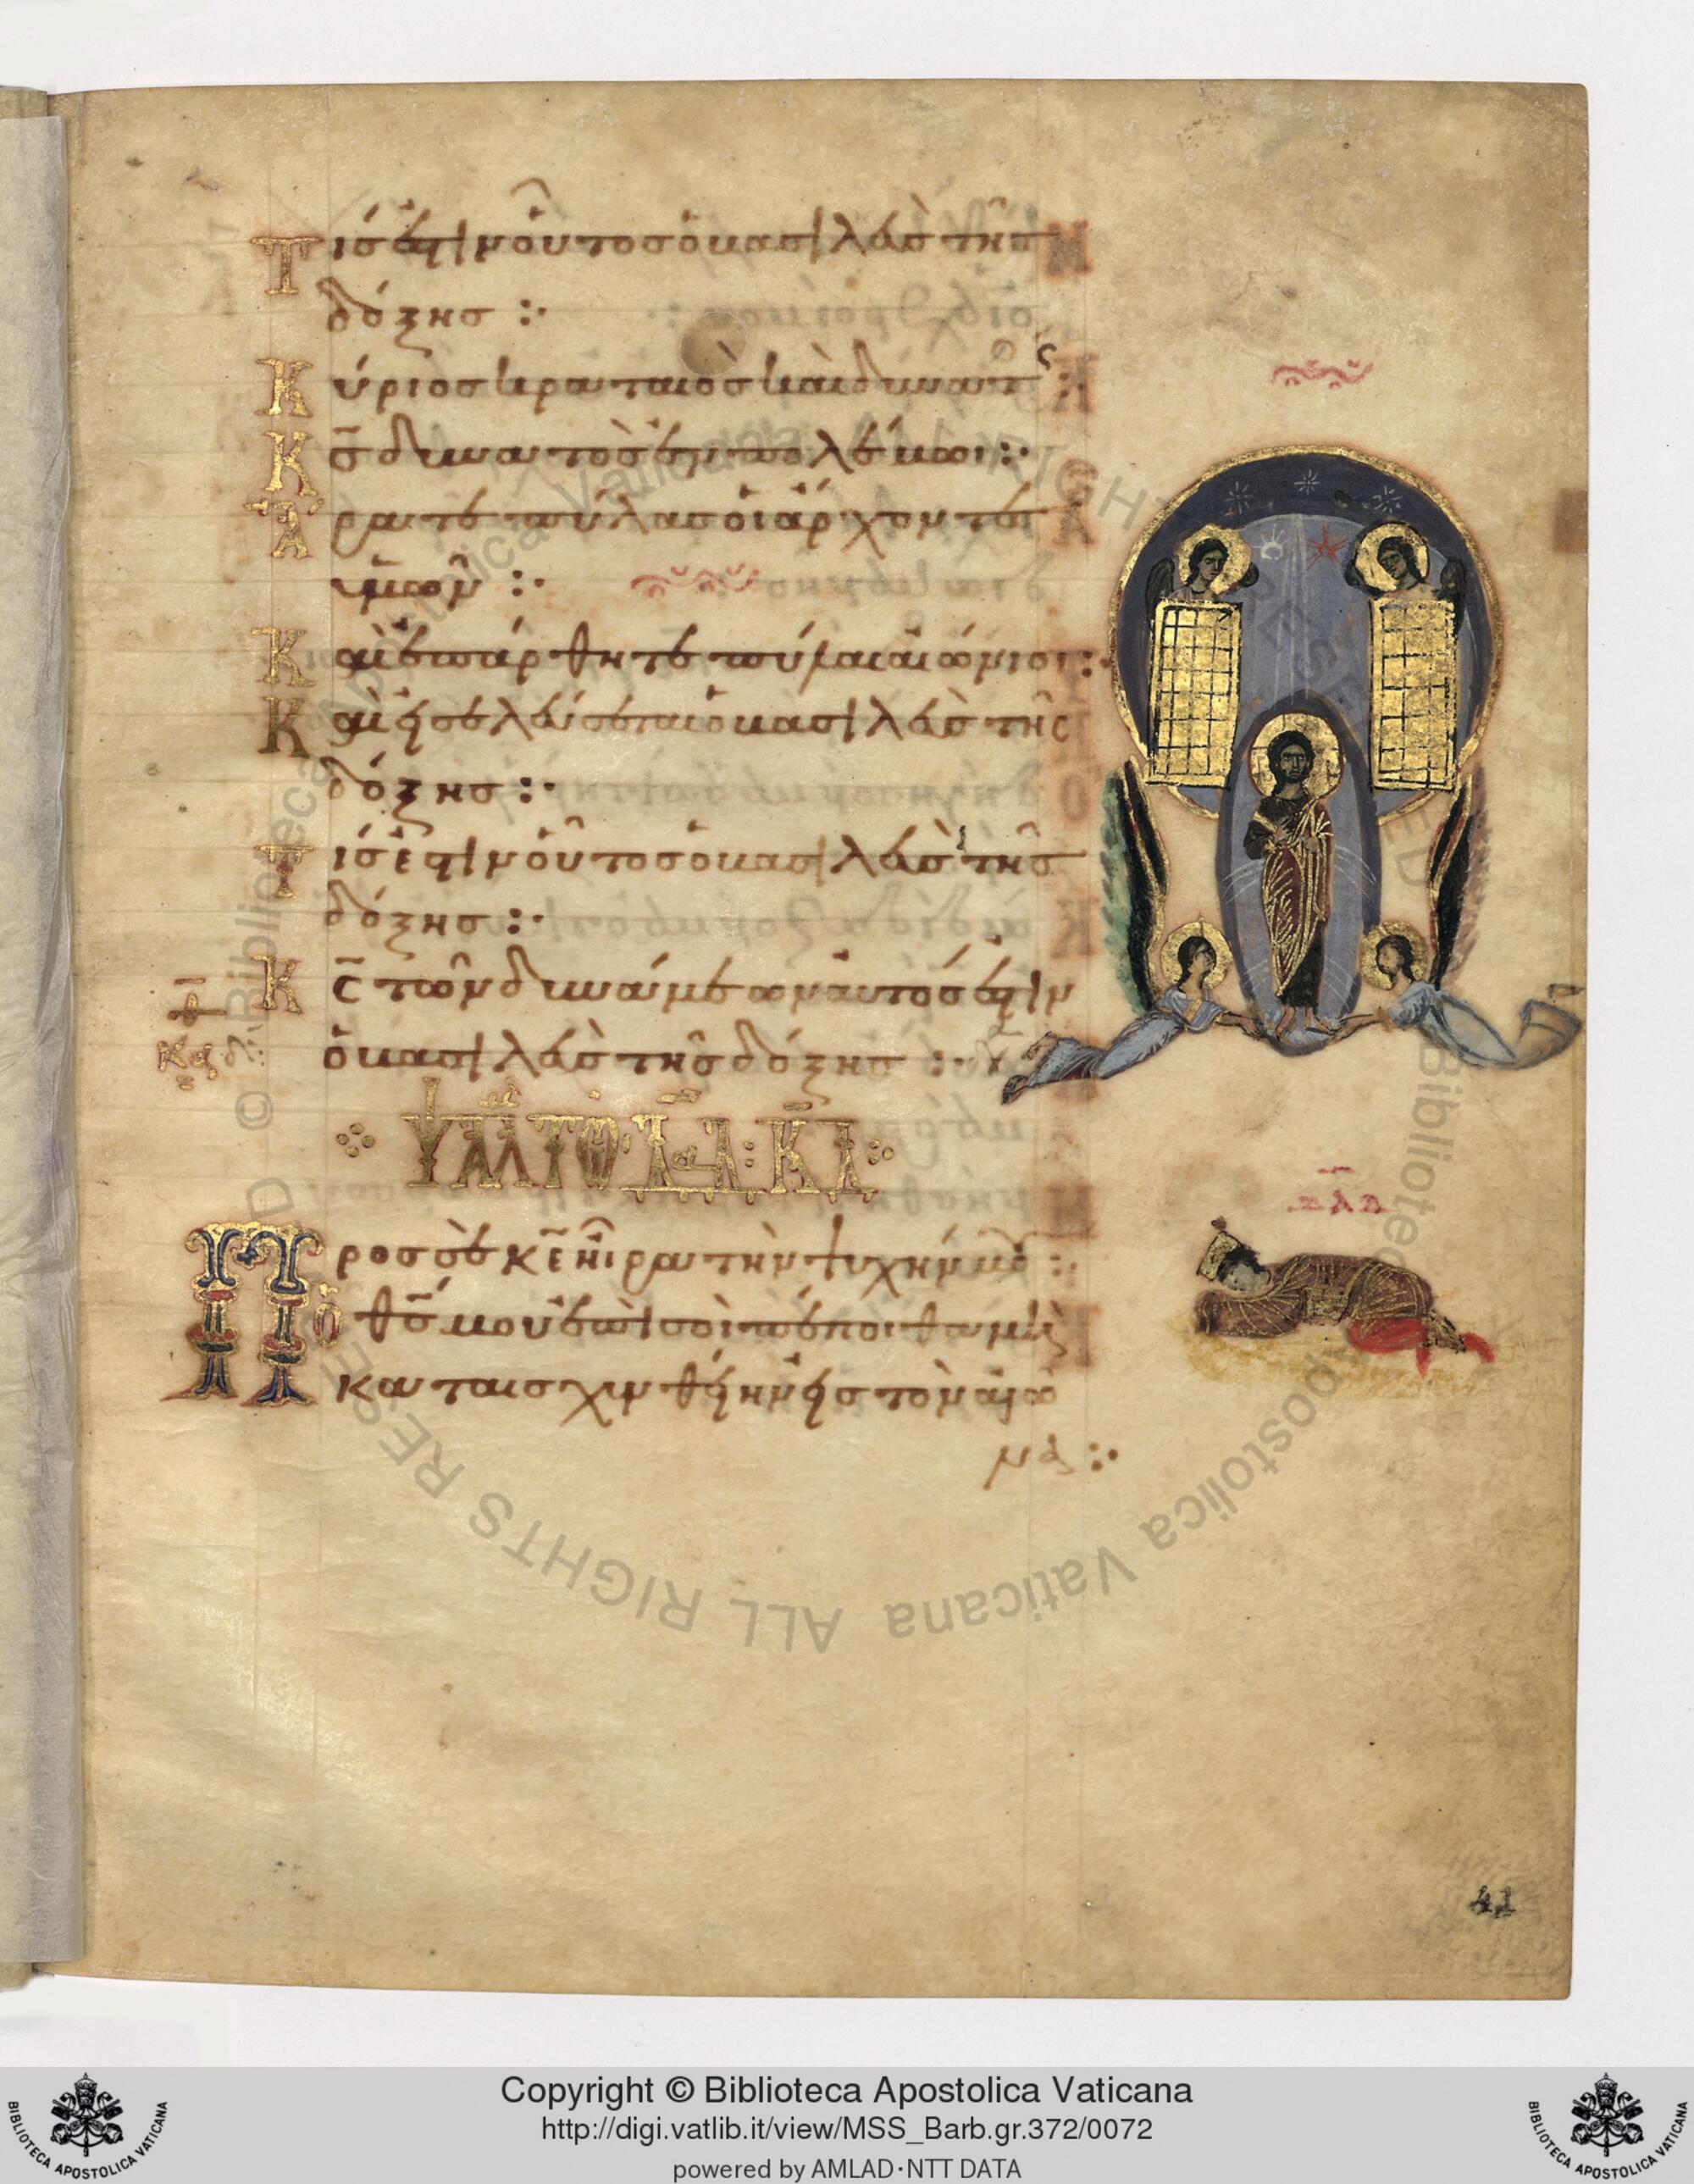 Τίς ἐστιν οὗτος ὁ βασιλεὺς τῆς
δόξης :·
Κύριος κραταιὸς καὶ δυνατός :·
Κ̅ς̅ δυνατὸς ἐν πολέμωι :·
Ἄρατε πύλας οἱ ἄρχοντες
ὑμῶν :·
Καὶ ἐπάρθητε πύλαι αἰώνιοι :·
Καὶ εἰσελεύσεται ὁ βασιλεὺς τῆς
δόξης :·
Τίς ἐστιν οὗτος ὁ βασιλεὺς τῆς
δόξης :·
Κ̅ς̅ τῶν δυνάμεων αὐτός ἐστιν
ὁ βασιλεὺς τῆς δόξης :·
Πρὸς σὲ κ̅ε̅ ἦιρα τὴν ψυχήν μου :·
Ὁ θ̅ς̅ μου ἐπὶ σοὶ πέποιθα μὴ
καταισχυνθείην εἰς τὸν αἰῶ
να :·
41
© Biblioteca Apostolica Vaticana ALL RIGHTS RESERVED
Copyright © Biblioteca Apostolica Vaticana
http://digi.vatlib.it/view/MSS_Barb.gr.372/0072
powered by AMLAD·NTT DATA
BIBLIOTECA APOSTOLICA VATICANA
BIBLIOTECA APOSTOLICA VATICANA